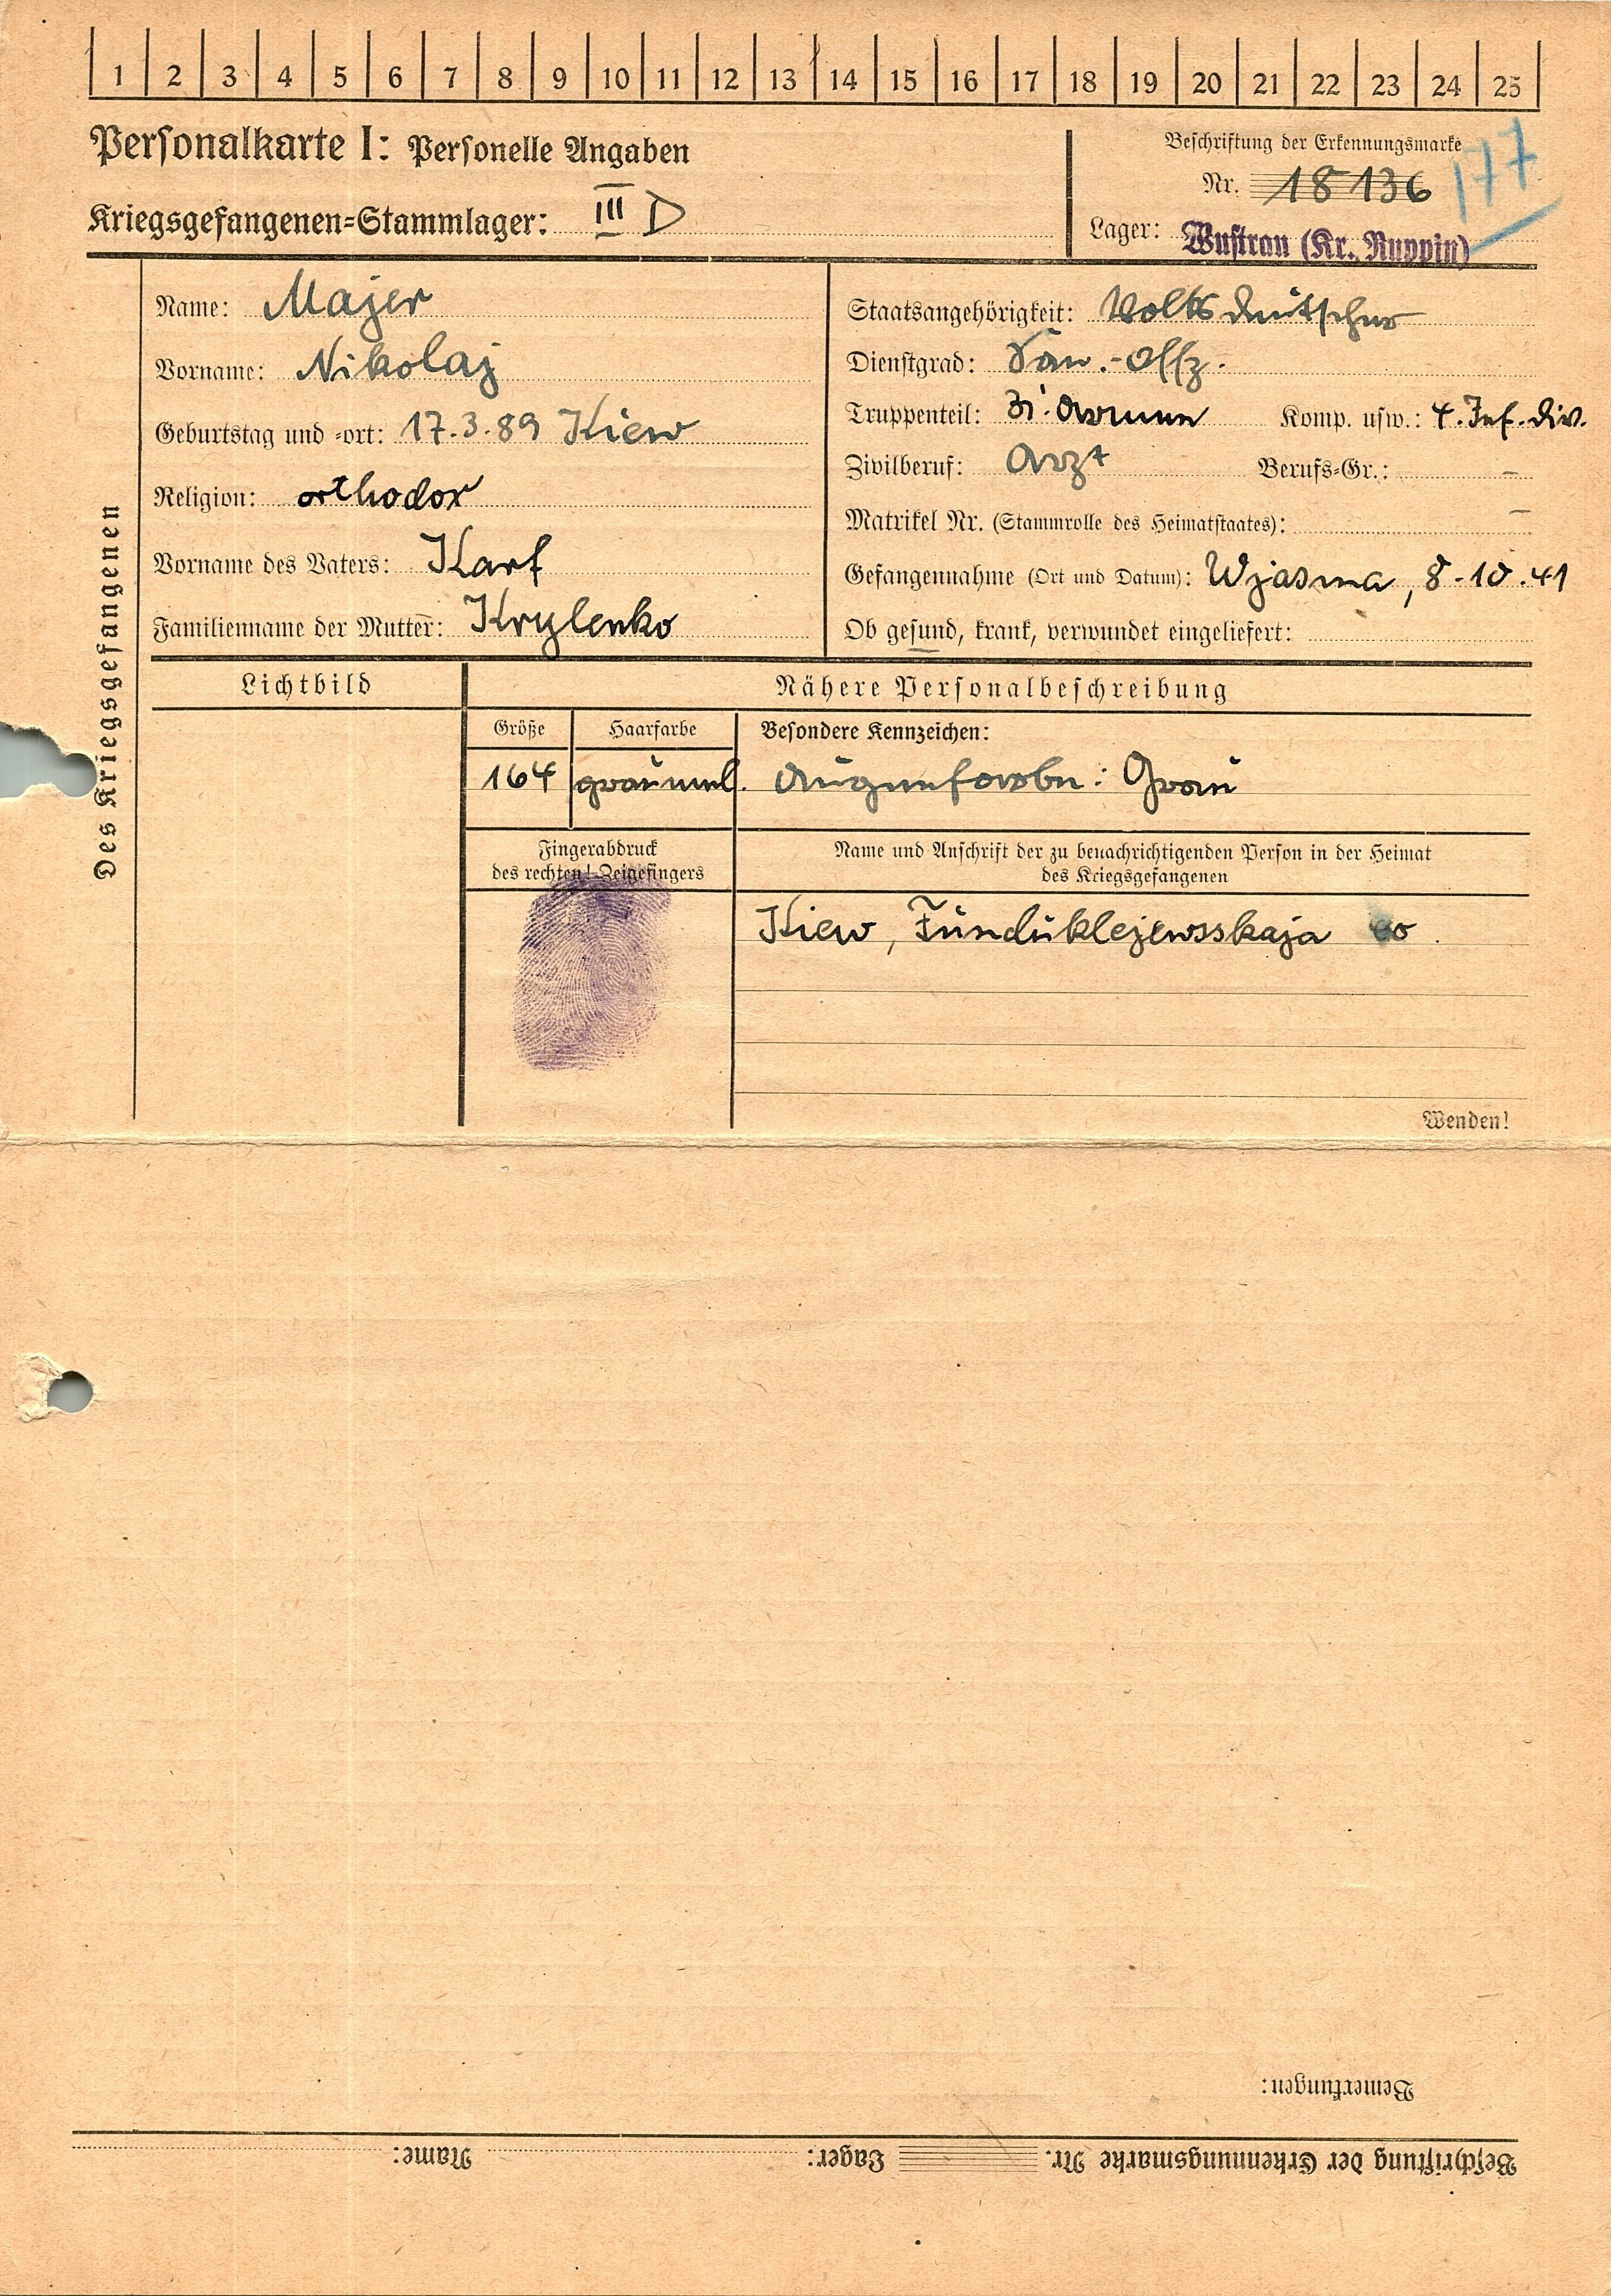 1 2 3 4 5 6 7 8 9 10 11 12 13 14 15 16 17 18 19 20 21 22 23 24 25
Personalkarte I: Personelle Angaben
Kriegsgefangenen-Stammlager: III D
Beschriftung der Erkennungsmarke
Nr. 18136
177
Lager: Wustrau (Kr. Ruppin)
Des Kriegsgefangenen
Name: Majer
Vorname: Nikolaj
Geburtstag und -ort: 17.3.89 Kiew
Religion: orthodox
Vorname des Vaters: Karl
Familienname der Mutter: Krylenko
Staatsangehörigkeit: Volksdeutscher
Dienstgrad: San.-Offz.
Truppenteil: 31. Armee Komp. usw.: 4. Inf. Div.
Zivilberuf: Arzt Berufs-Gr.: –
Matrikel Nr. (Stammrolle des Heimatstaates): –
Gefangennahme (Ort und Datum): Wjasma, 8.10.41
Ob gesund, krank, verwundet eingeliefert:
Lichtbild
Nähere Personalbeschreibung
Größe Haarfarbe Besondere Kennzeichen:
164 graumel. Augenfarbe: Grau
Fingerabdruck
des rechten! Zeigefingers
Name und Anschrift der zu benachrichtigenden Person in der Heimat
des Kriegsgefangenen
Kiew, Funduklejewsskaja
Wenden!
Bemerkungen:
Beschriftung der Erkennungsmarke Nr. Lager: Name: